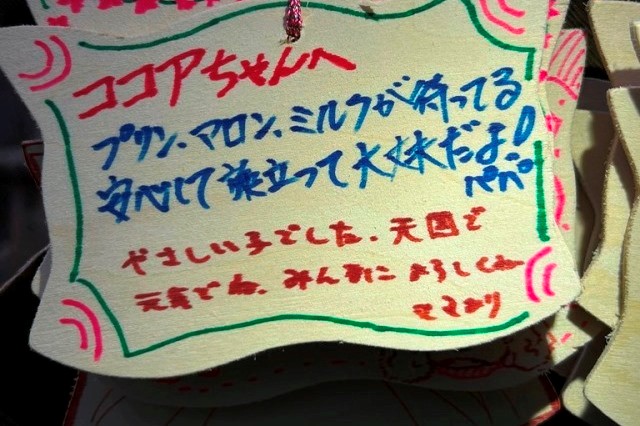 ココアちゃんへ
プリン、マロン、ミルクが待ってる
安心して旅立って大丈夫だよ!
パパ
やさしい子でした。天国で
元気でね。みんなによろしくね
ママより